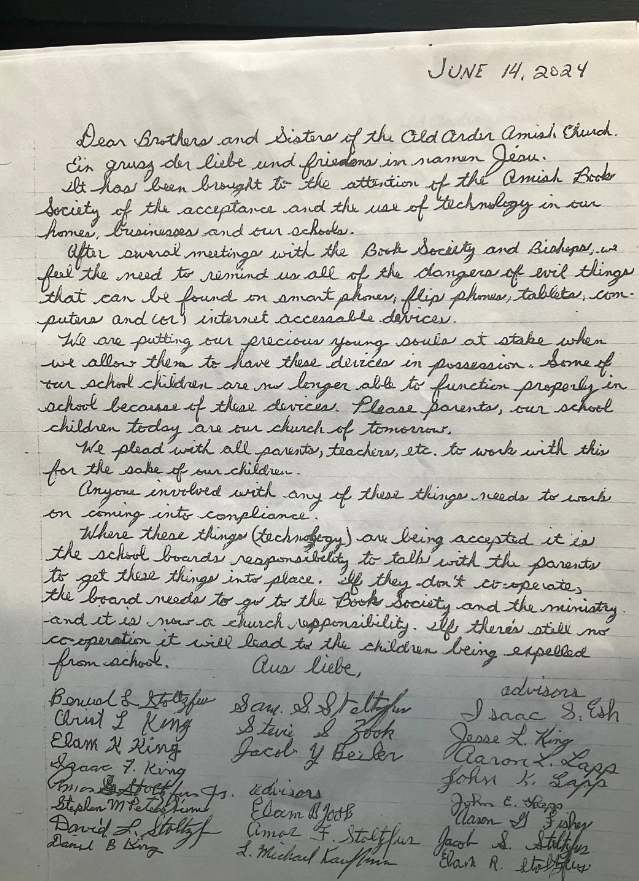 JUNE 14, 2024
Dear Brothers and Sisters of the Old Order Amish Church.
Ein grusz der liebe und friedens in namen Jesu.
It has been brought to the attention of the Amish Book
Society of the acceptance and the use of technology in our
homes, businesses and our schools.
After several meetings with the Book Society and Bishops, we
feel the need to remind us all of the dangers of evil things
that can be found on smart phones, flip phones, tablets, com-
puters and (or) internet accessable devices.
We are putting our precious young souls at stake when
we allow them to have these devices in possession. Some of
our school children are no longer able to function properly in
school because of these devices. Please parents, our school
children today are our church of tomorrow.
We plead with all parents, teachers, etc. to work with this
for the sake of our children.
Anyone involved with any of these things needs to work
on coming into compliance.
Where these things (technology) are being accepted it is
the school boards responsibility to talk with the parents
to get these things into place. If they don't co-operate,
the board needs to go to the Book Society and the ministry
and it is now a church responsibility. If there's still no
co-operation it will lead to the children being expelled
from school.
Aus liebe,
Benuel L Stoltzfus
Christ L King
Elam K King
Isaac F. King
Amos Stoltzfus Jr.
Stephen M
David L. Stoltzf
Daniel B King
Sam. S. Stoltzfus
Stevie S Zook
Jacob Y Beiler
advisors
Elam B Zook
Amos F. Stoltzfus
L. Michael Kauffman
advisors
Isaac S. Esh
Jesse L. King
Aaron L. Lapp
John K. Lapp
John E.
Aaron G Fisher
Jacob S. Stoltzfus
Elam R. Stoltzfus